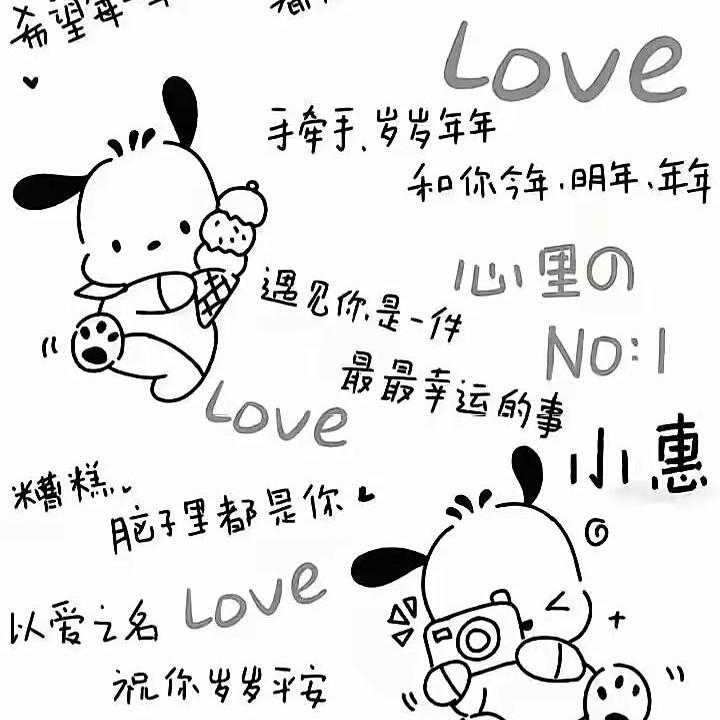 希望每一年
Love
手牵手、岁岁年年
和你今年、明年、年年
心里の
NO:1
遇见你,是一件
最最幸运的事
Love
小惠
糟糕、
脑子里都是你
Love
以爱之名
祝你岁岁平安